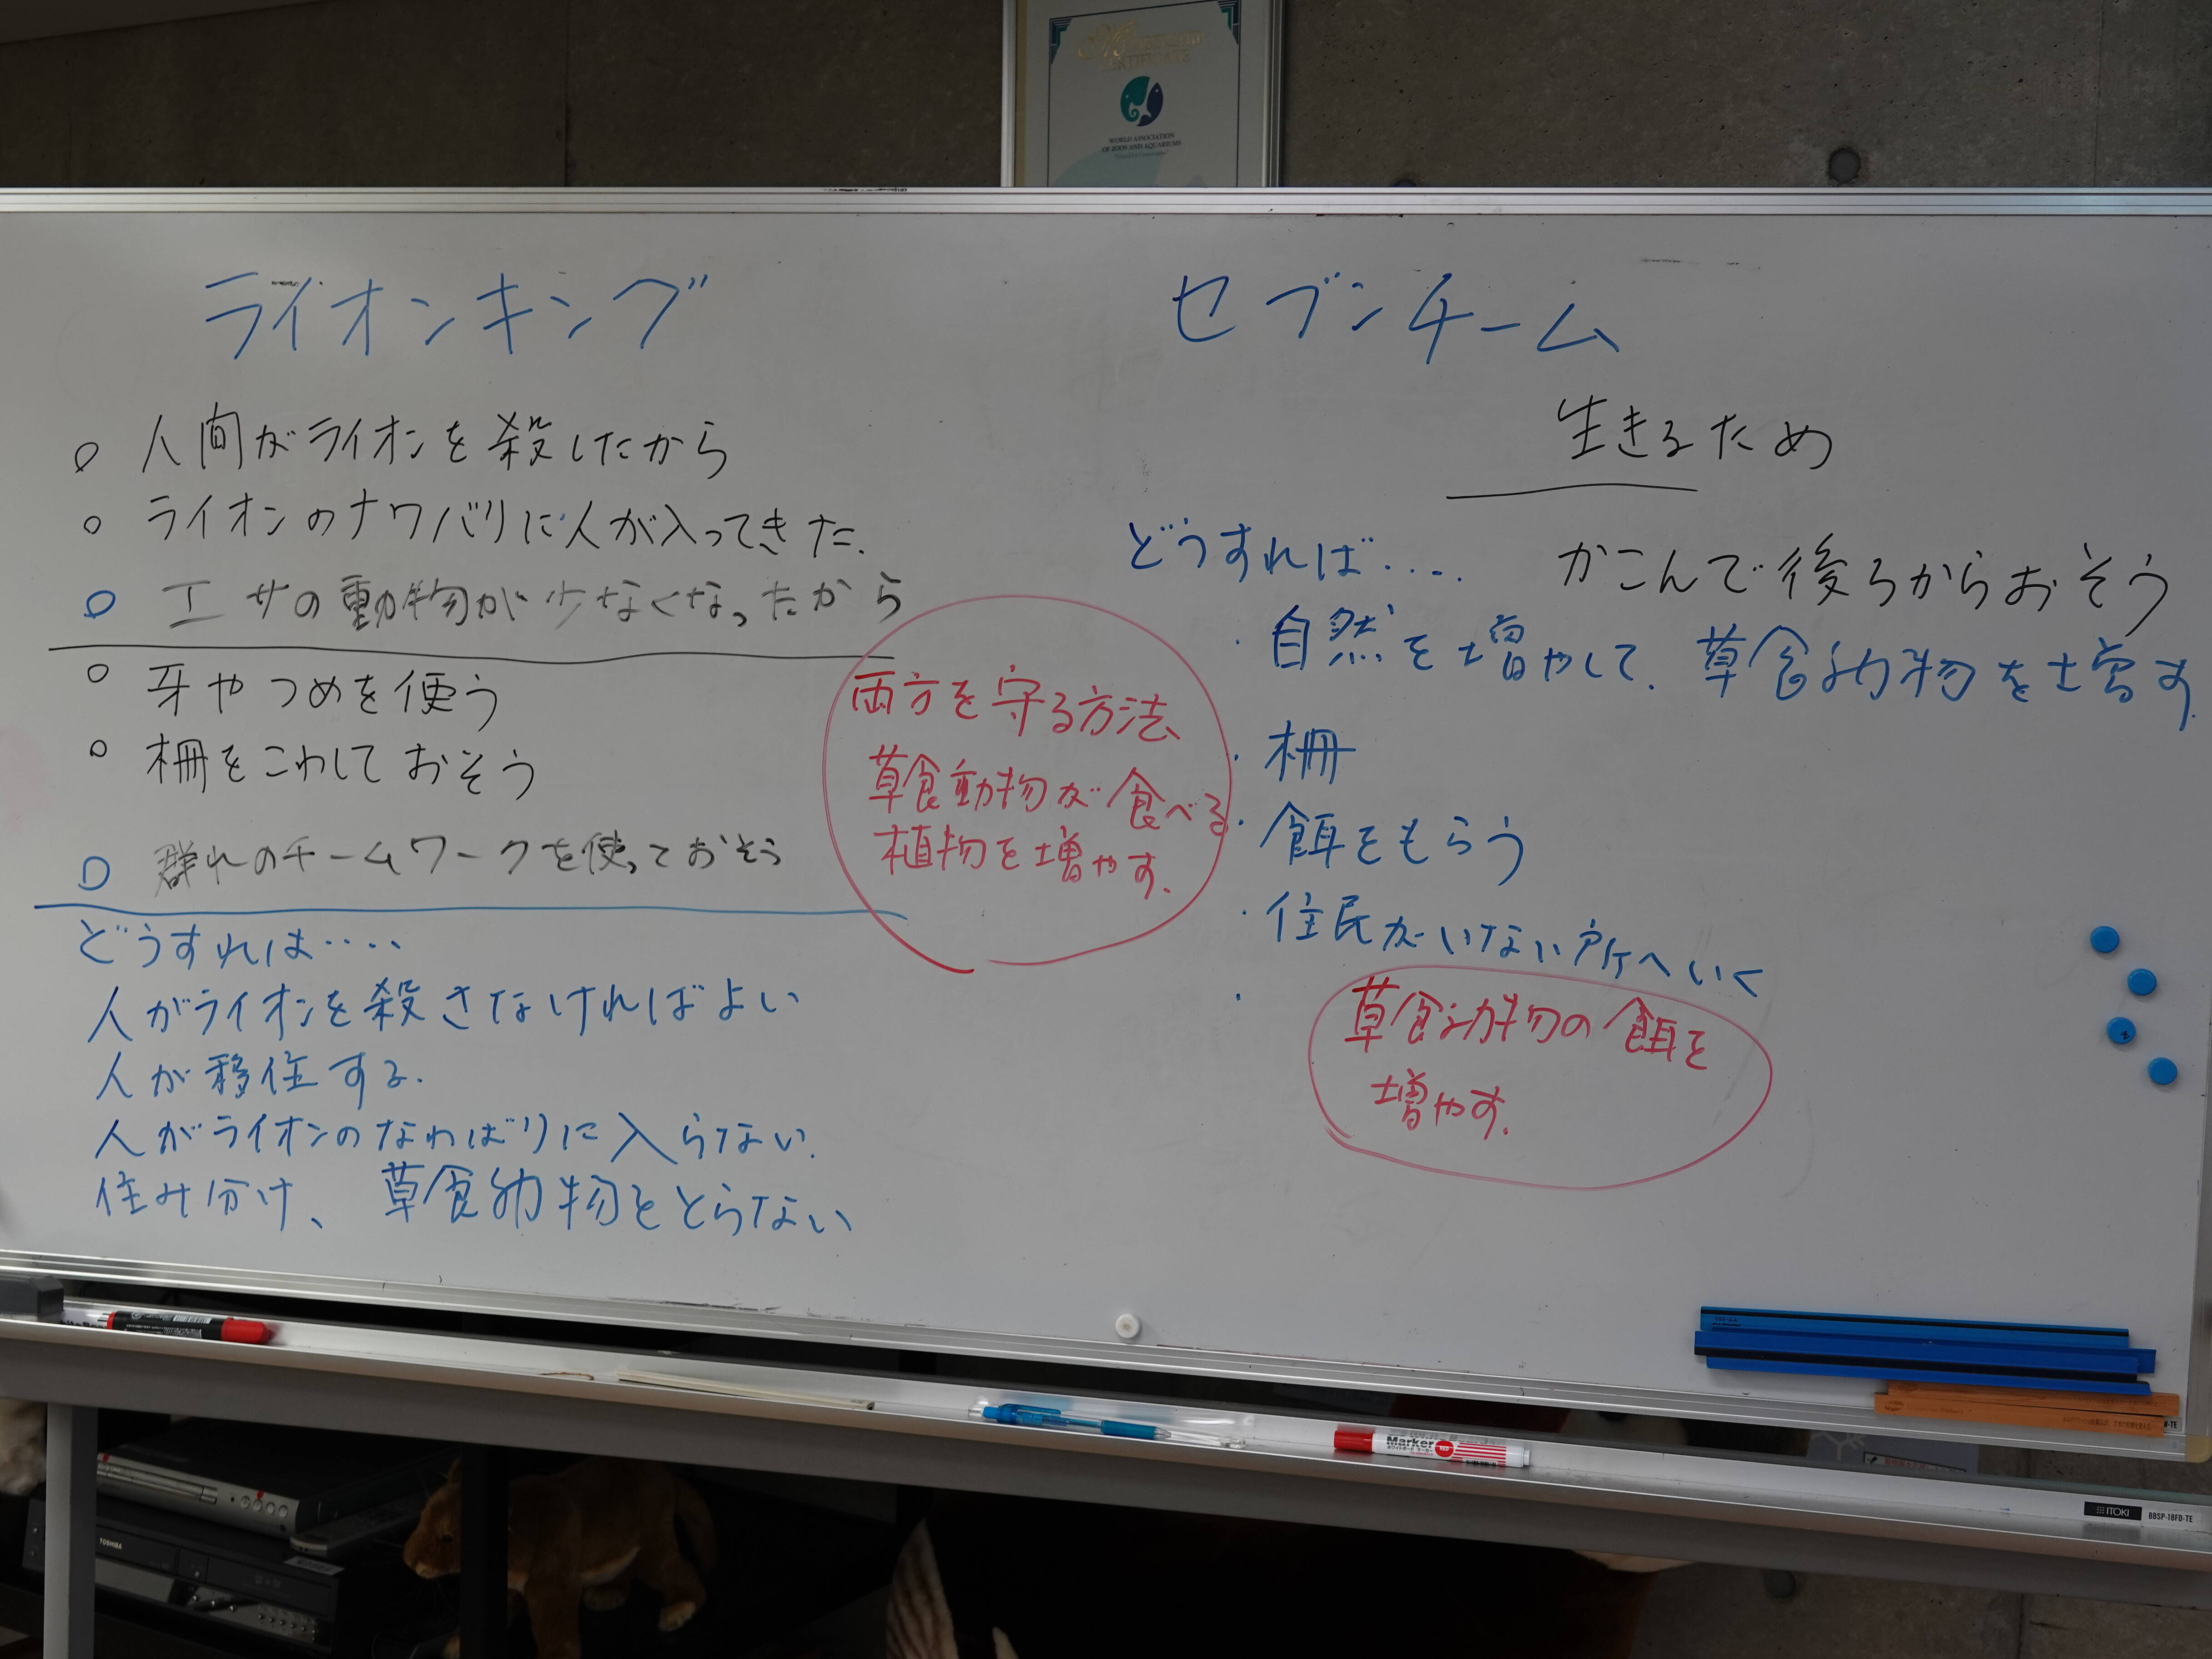 WORLD ASSOCIATION
OF ZOOS AND AQUARIUMS
ライオンキング
○ 人間がライオンを殺したから
○ ライオンのナワバリに人が入ってきた.
○ エサの動物が少なくなったから
○ 牙やつめを使う
○ 柵をこわしておそう
○ 群れのチームワークを使っておそう
どうすれば‥‥
人がライオンを殺さなければよい
人が移住する.
人がライオンのなわばりに入らない.
住み分け、 草食動物をとらない
両方を守る方法、
草食動物が食べる
植物を増やす.
セブンチーム
生きるため
どうすれば‥‥
かこんで後ろからおそう
・自然を増やして、草食動物を増す.
・柵
・餌をもらう
・住民がいない所へいく
・
草食動物の餌を
増やす.
Marker
RED
TOSHIBA
ITOKI
BBSP-18FD-TE